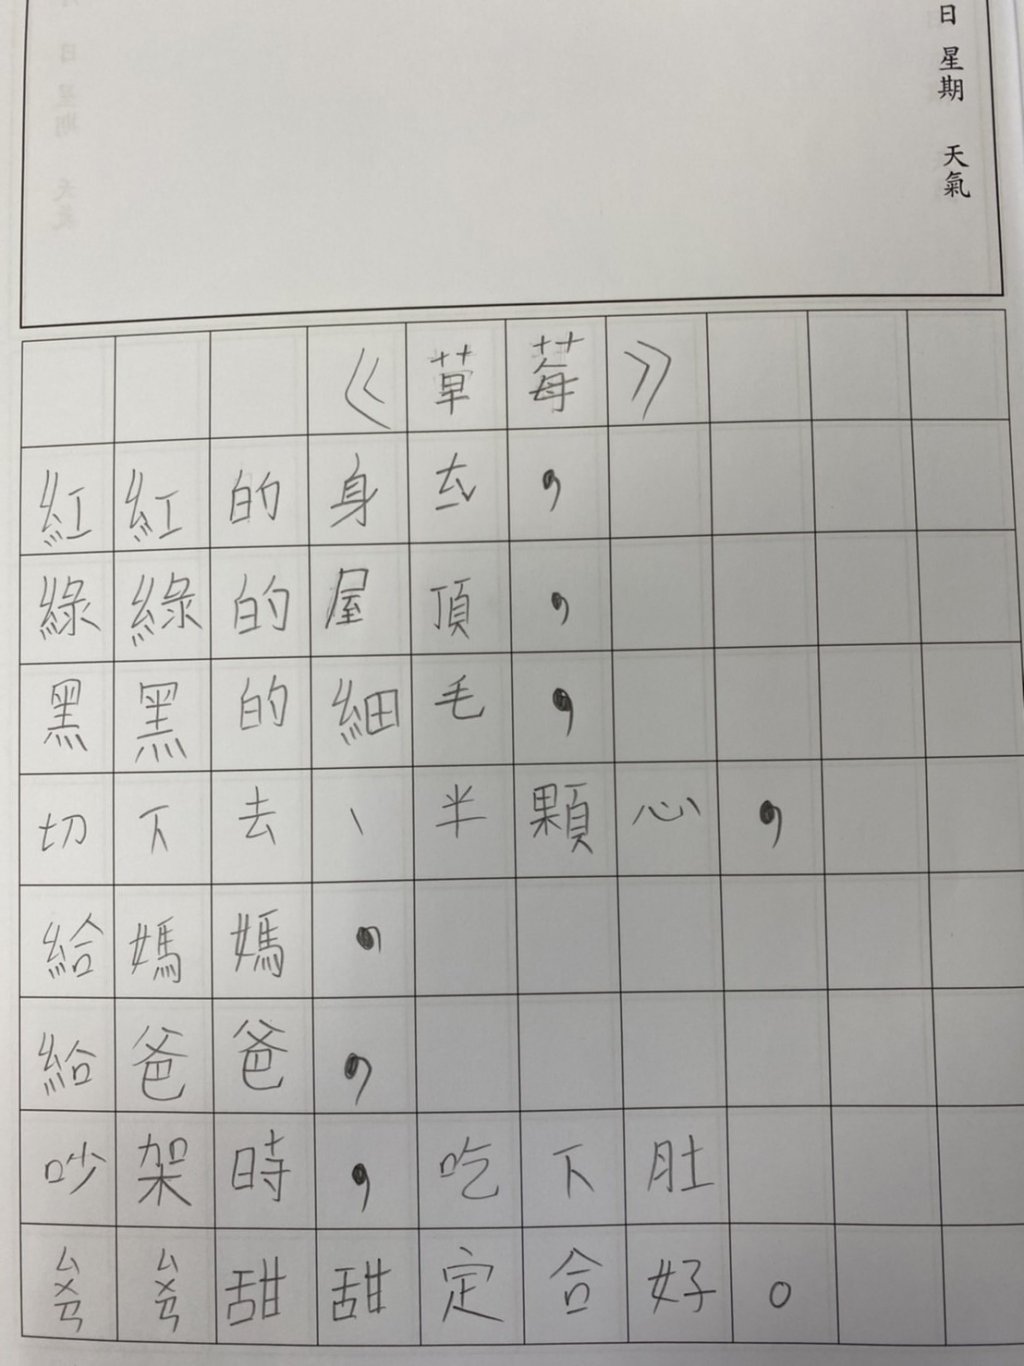 日 星期 天氣
《草莓》
紅紅的身ㄊㄧˇ，
綠綠的屋頂，
黑黑的細毛，
切下去、半顆心，
給媽媽，
給爸爸，
吵架時，吃下肚
ㄙㄨㄢㄙㄨㄢ甜甜定合好。